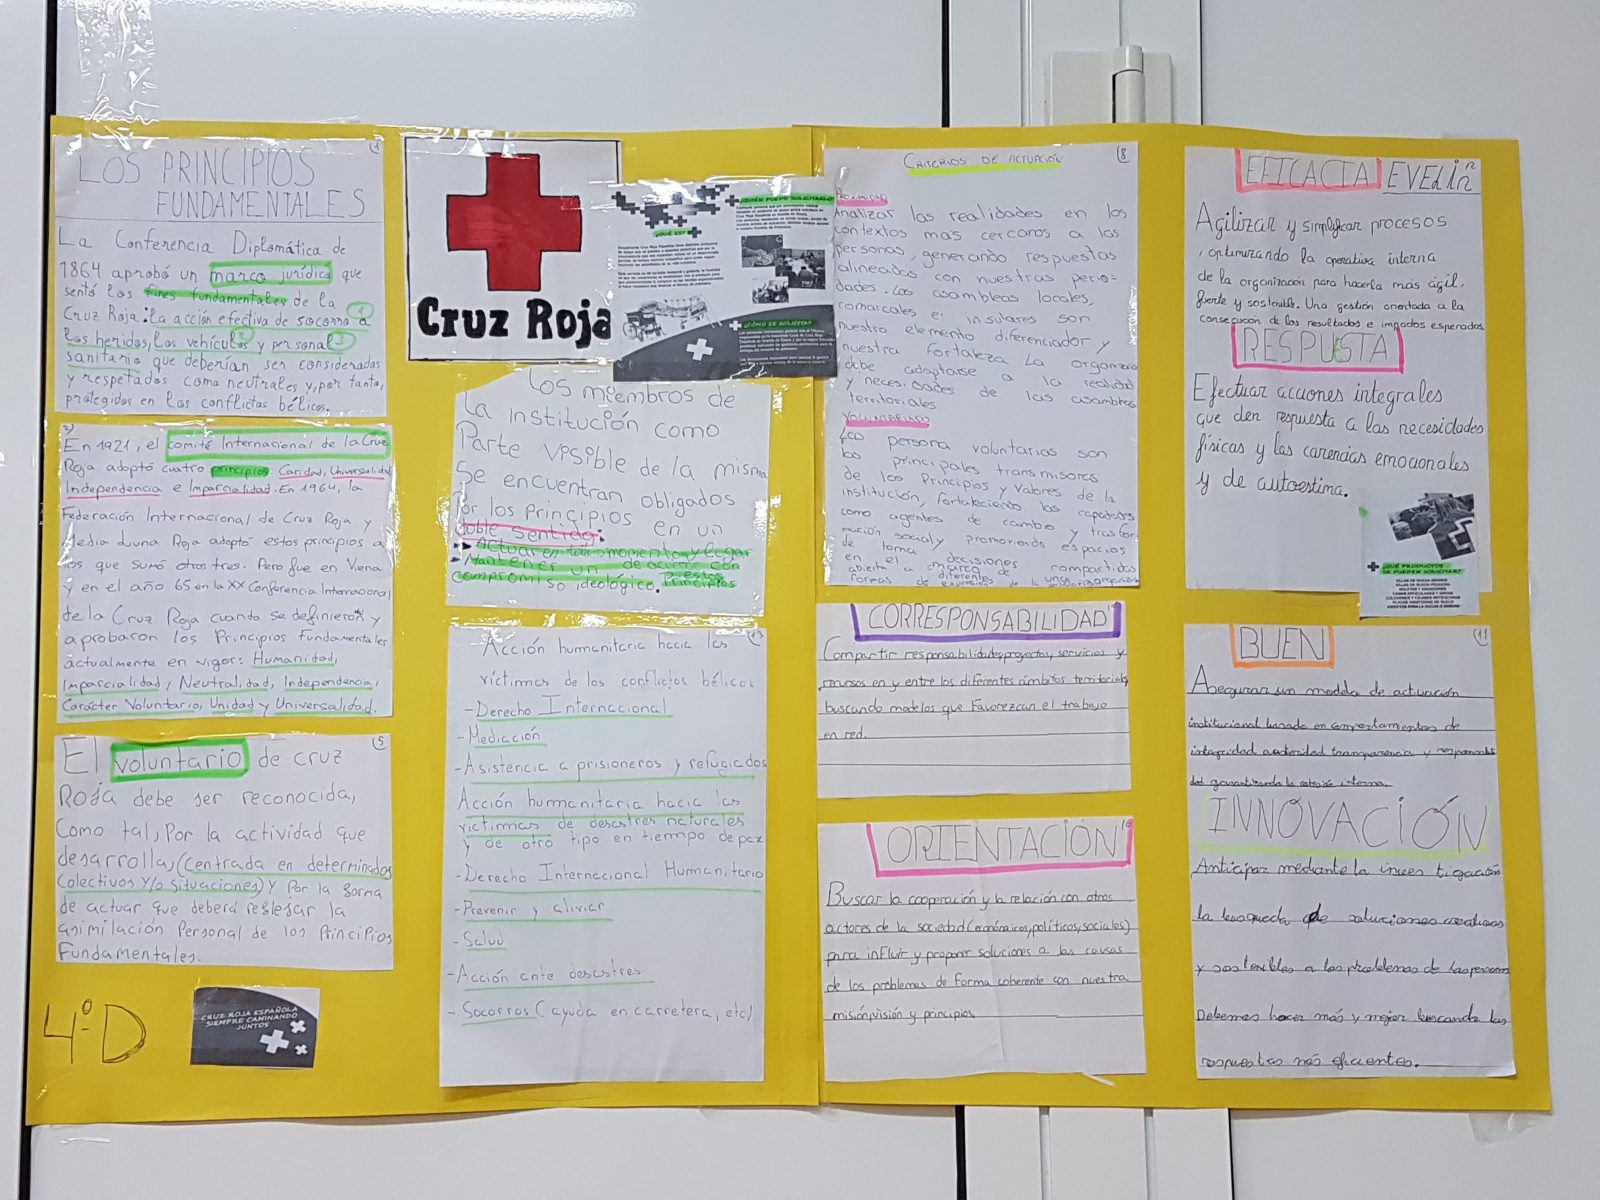 1
LOS PRINCIPIOS
FUNDAMENTALES
La Conferencia Diplomática de
1864 aprobó un marco jurídico que
sentó los fines fundamentales de la
Cruz Roja: la acción efectiva de socorro a
los heridos, los vehículos y personal
sanitario que deberían ser considerados
y respetados como neutrales y, por tanto,
protegidos en los conflictos bélicos.
2)
En 1921, el comité Internacional de la Cruz
Roja adoptó cuatro principios: Caridad, Universalidad
Independencia e Imparcialidad. En 1964, la
Federación Internacional de Cruz Roja y
Media Luna Roja adoptó estos principios a
los que sumó otros tres. Pero fue en Viena
y en el año 65 en la XX Conferencia Internacional
de la Cruz Roja cuando se definieron y
aprobaron los Principios Fundamentales
actualmente en vigor: Humanidad,
Imparcialidad, Neutralidad, Independencia,
Carácter Voluntario, Unidad y Universalidad.
5
El voluntario de cruz
Roja debe ser reconocida,
Como tal, Por la actividad que
desarrolla, (centrada en determinados
Colectivos y/o situaciones) y Por la forma
de actuar que deberá reflejar la
asimilación Personal de los Principios
Fundamentales.
4º D
CRUZ ROJA ESPAÑOLA
SIEMPRE CAMINANDO
JUNTOS
Cruz Roja
¿QUÉ ES?
¿QUIÉN PUEDE SOLICITARLO?
¿CÓMO SE SOLICITA?
Los miembros de
La institución como
Parte vesible de la misma
Se encuentran obligados
Por los Principios en un
doble sentido:
Actuar en todo momento y lugar
Mantener un de acuerdo con
compromiso ideológico. estos Principios
13
Acción humanitaria hacia las
víctimas de los conflictos bélicos
- Derecho Internacional
- Mediación
- Asistencia a prisioneros y refugiados
Acción humanitaria hacia las
víctimas de desastres naturales
y de otro tipo en tiempo de paz
- Derecho Internacional Humanitario
- Prevenir y aliviar
- Salud
- Acción ante desastres
- Socorros (ayuda en carretera, etc)
8
CRITERIOS DE ACTUACIÓN
Proximidad
Analizar las realidades en los
contextos mas cercanos a las
personas, generando respuestas
alineadas con nuestras
Las asambleas locales,
comarcales e insulares son
nuestro elemento diferenciador y
nuestra fortaleza. La
debe adaptarse a la realidad
y necesidades de las asambleas
territoriales
VOLUNTARIADO
Las persona voluntarias son
los principales transmisores
de los Principios y Valores de la
institución, fortaleciendo las
como agentes de cambio y
social y promoviendo espacios
de toma decisiones compartidos
en el marco de una
abierta a diferentes
formas de
CORRESPONSABILIDAD
Compartir responsabilidades, proyectos, servicios y
recursos en y entre los diferentes ámbitos territoriales,
buscando modelos que favorezcan el trabajo
en red.
ORIENTACIÓN
10
Buscar la cooperación y la relación con otros
actores de la sociedad (económicos, políticos, sociales)
para influir y proponer soluciones a las causas
de los problemas de forma coherente con nuestra
misión, visión y principios
EFICACIA EVELIN
12
Agilizar y simplificar procesos
, optimizando la operativa interna
de la organización para hacerla más ágil,
fuerte y sostenible. Una gestión orientada a la
consecución de los resultados e impactos esperados
RESPUESTA
Efectuar acciones integrales
que den respuesta a las necesidades
físicas y las carencias emocionales
y de autoestima.
¿QUÉ PRODUCTOS
SE PUEDEN SOLICITAR?
11
BUEN
Asegurar un modelo de actuación
institucional basado en comportamientos de
integridad austeridad transparencia y responsabi
dad garantizando la cohesión interna.
INNOVACIÓN
Anticipar mediante la inves tigación
la busqueda de soluciones creativas
y sostenibles a los problemas de las personas
Debemos hacer más y mejor buscando las
respuestas más eficientes.